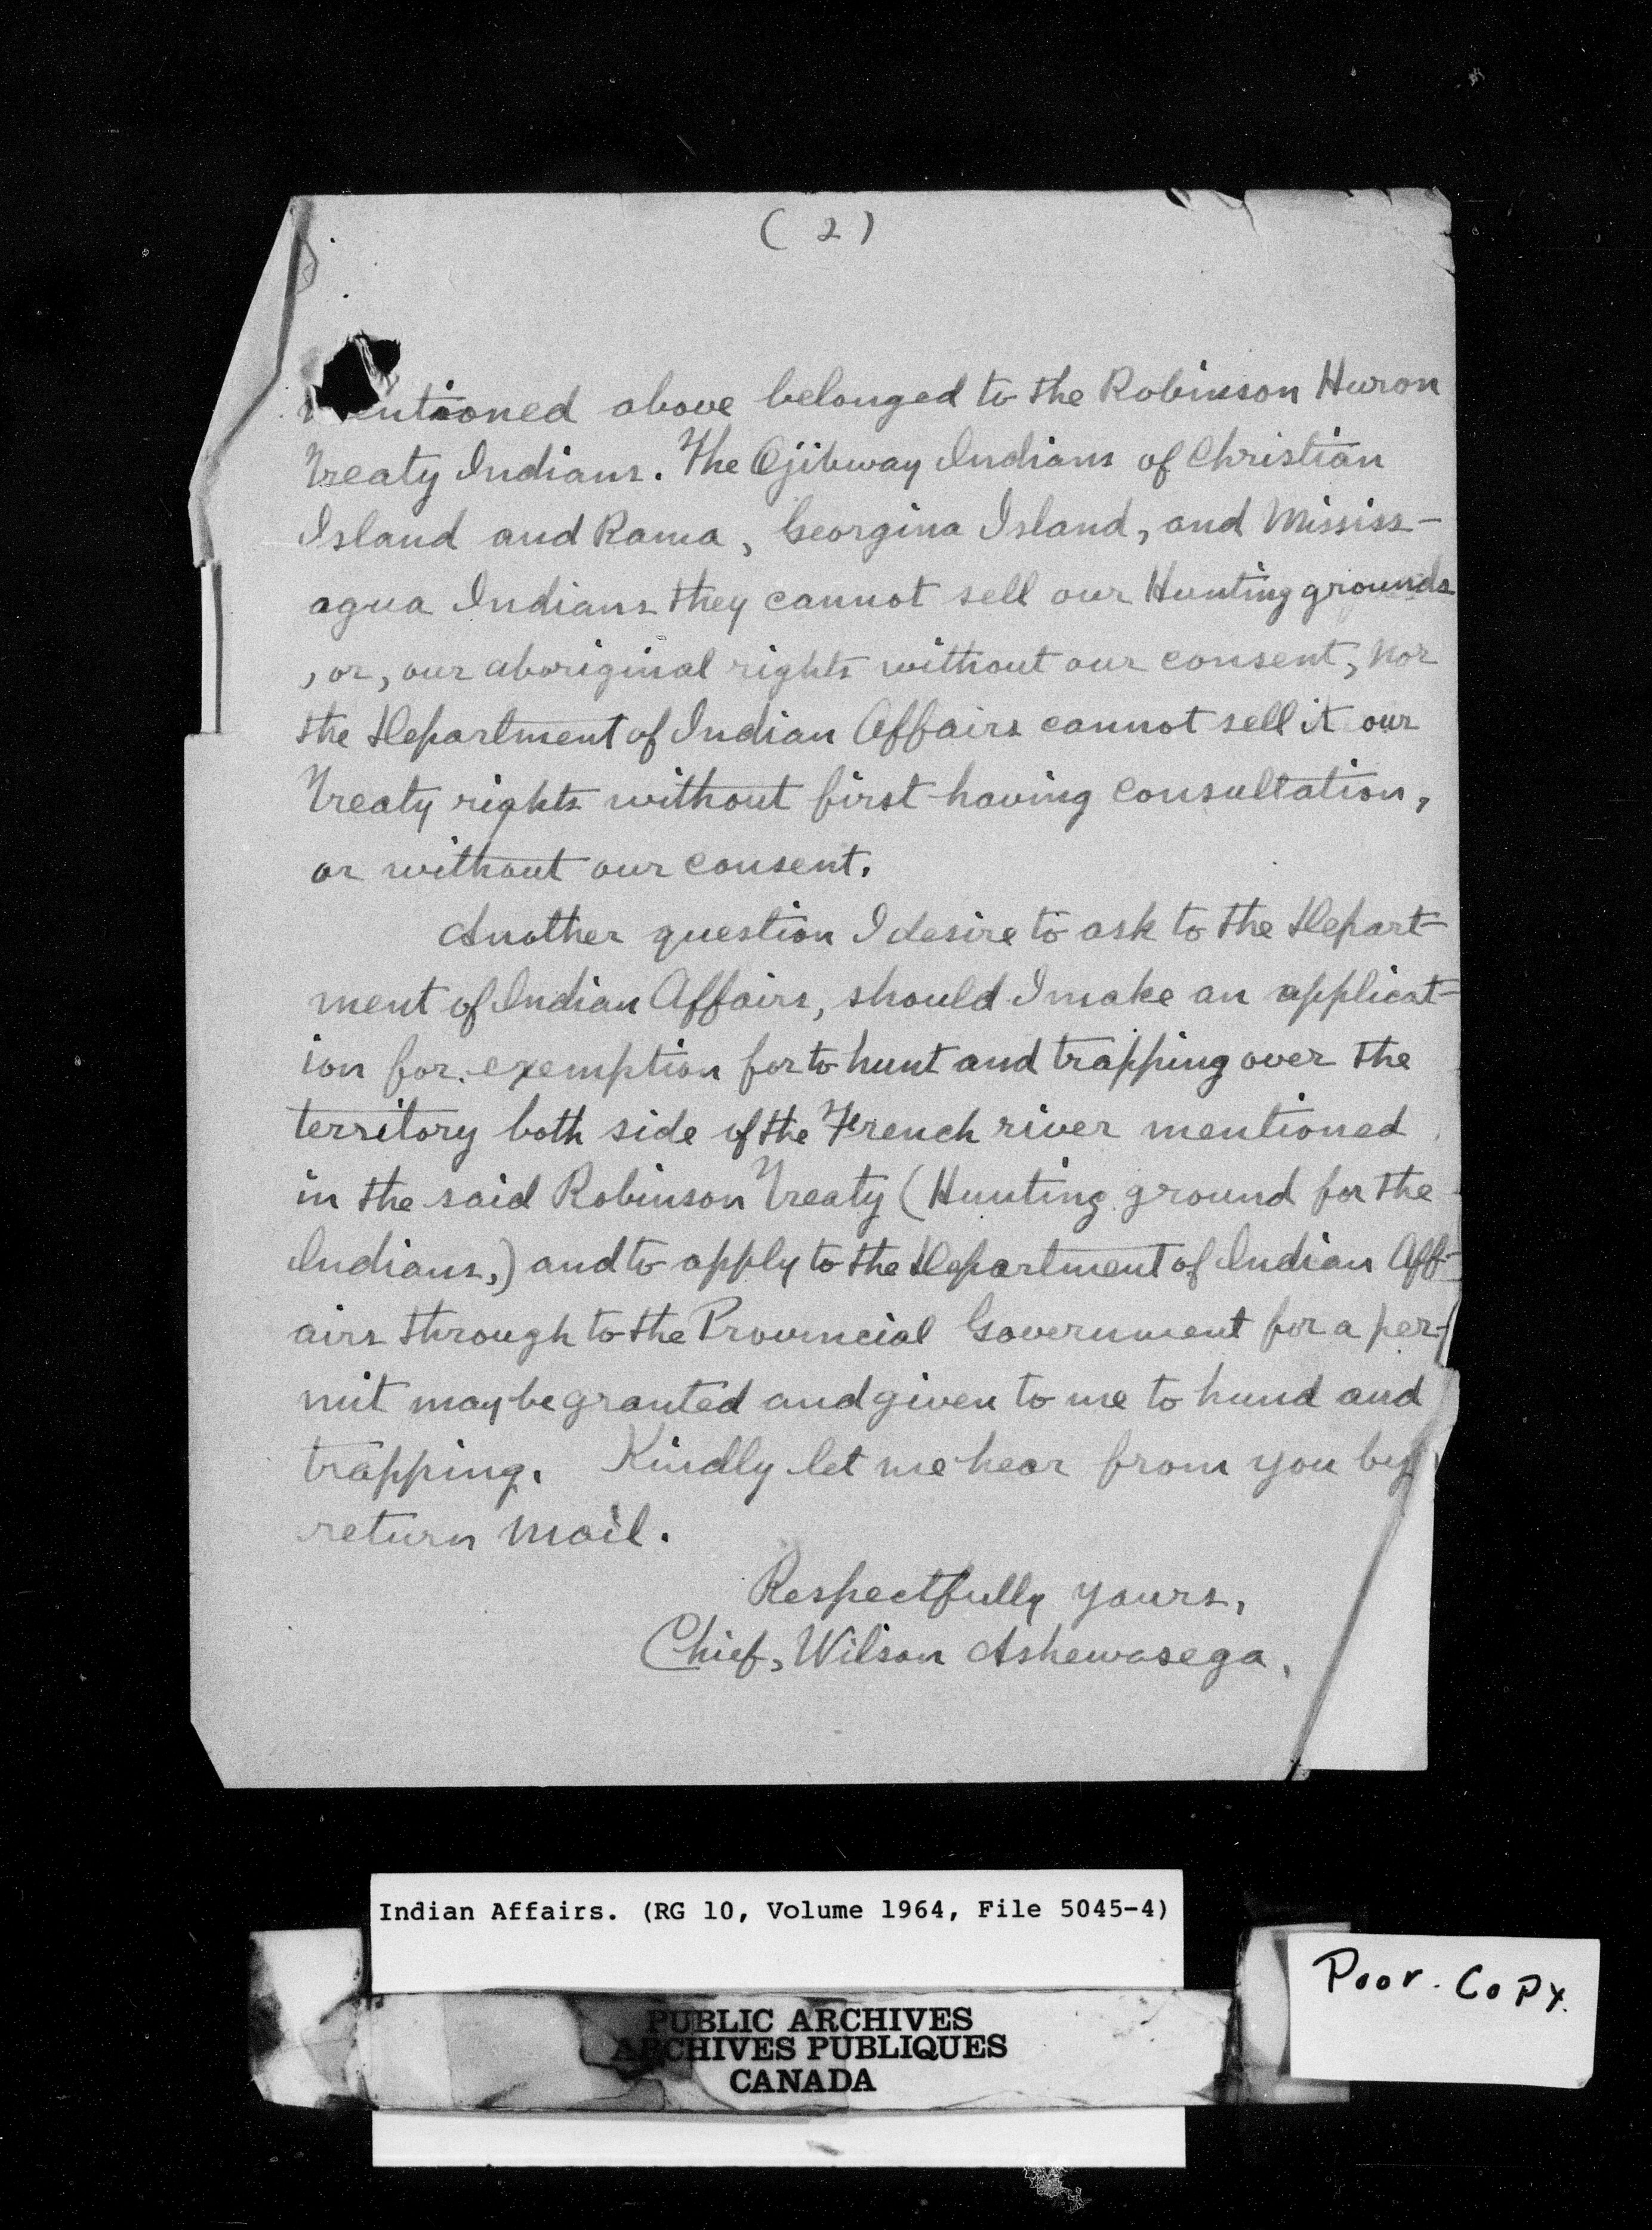 ( 2 )
mentioned above belonged to the Robinson Huron
Treaty Indians. The Ojibway Indians of Christian
Island and Rama, Georgina Island, and Mississ-
agua Indians they cannot sell our Hunting grounds
, or, our aboriginal rights without our consent, nor
the Department of Indian Affairs cannot sell it our
Treaty rights without first having consultation,
or without our consent.
Another question I desire to ask to the Depart-
ment of Indian Affairs, should I make an applicat-
ion for exemption for to hunt and trapping over the
territory both side of the French river mentioned
in the said Robinson Treaty (Hunting ground for the
Indians,) and to apply to the Department of Indian Aff-
airs through to the Provincial Government for a per-
mit may be granted and given to me to hund and
trapping. Kindly let me hear from you by
return mail.
Respectfully yours,
Chief, Wilson Ashewasega.
Indian Affairs. (RG 10, Volume 1964, File 5045-4)
PUBLIC ARCHIVES
ARCHIVES PUBLIQUES
CANADA
Poor. Copy.